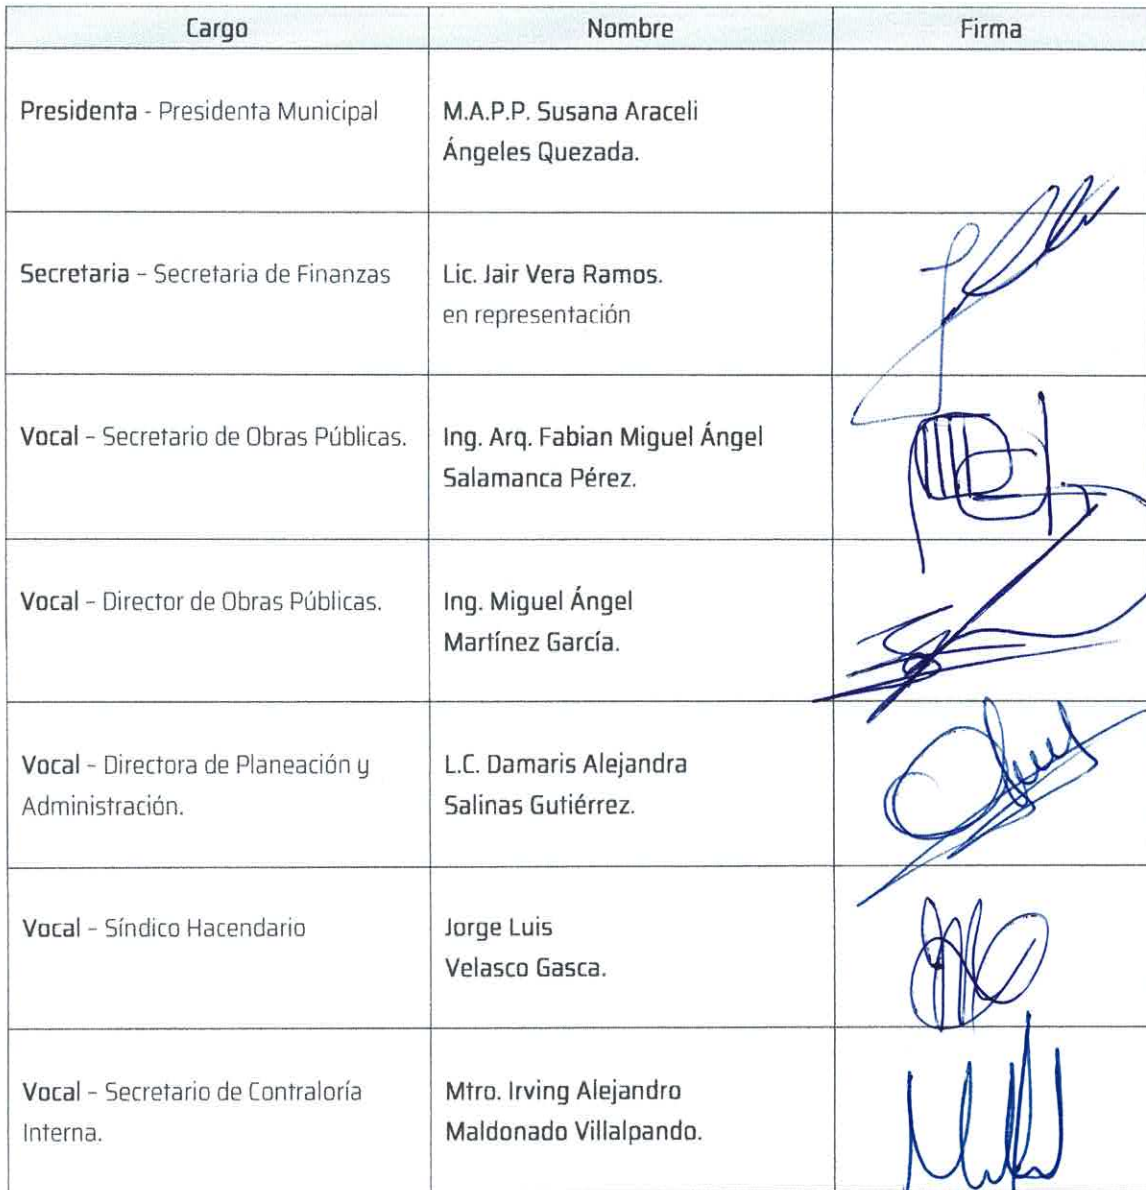 Cargo Nombre Firma
Presidenta - Presidenta Municipal
M.A.P.P. Susana Araceli
Ángeles Quezada.
Secretaria – Secretaria de Finanzas
Lic. Jair Vera Ramos.
en representación
Vocal – Secretario de Obras Públicas.
Ing. Arq. Fabian Miguel Ángel
Salamanca Pérez.
Vocal – Director de Obras Públicas.
Ing. Miguel Ángel
Martínez García.
Vocal – Directora de Planeación y
Administración.
L.C. Damaris Alejandra
Salinas Gutiérrez.
Vocal – Síndico Hacendario
Jorge Luis
Velasco Gasca.
Vocal – Secretario de Contraloría
Interna.
Mtro. Irving Alejandro
Maldonado Villalpando.